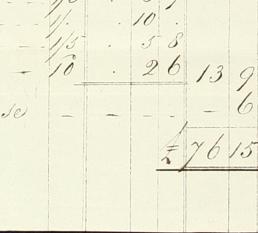 1/. . 10 .
1/5 . 5 8
– 10 . 2 6 13 9
se – – – – 6
£ 76 15